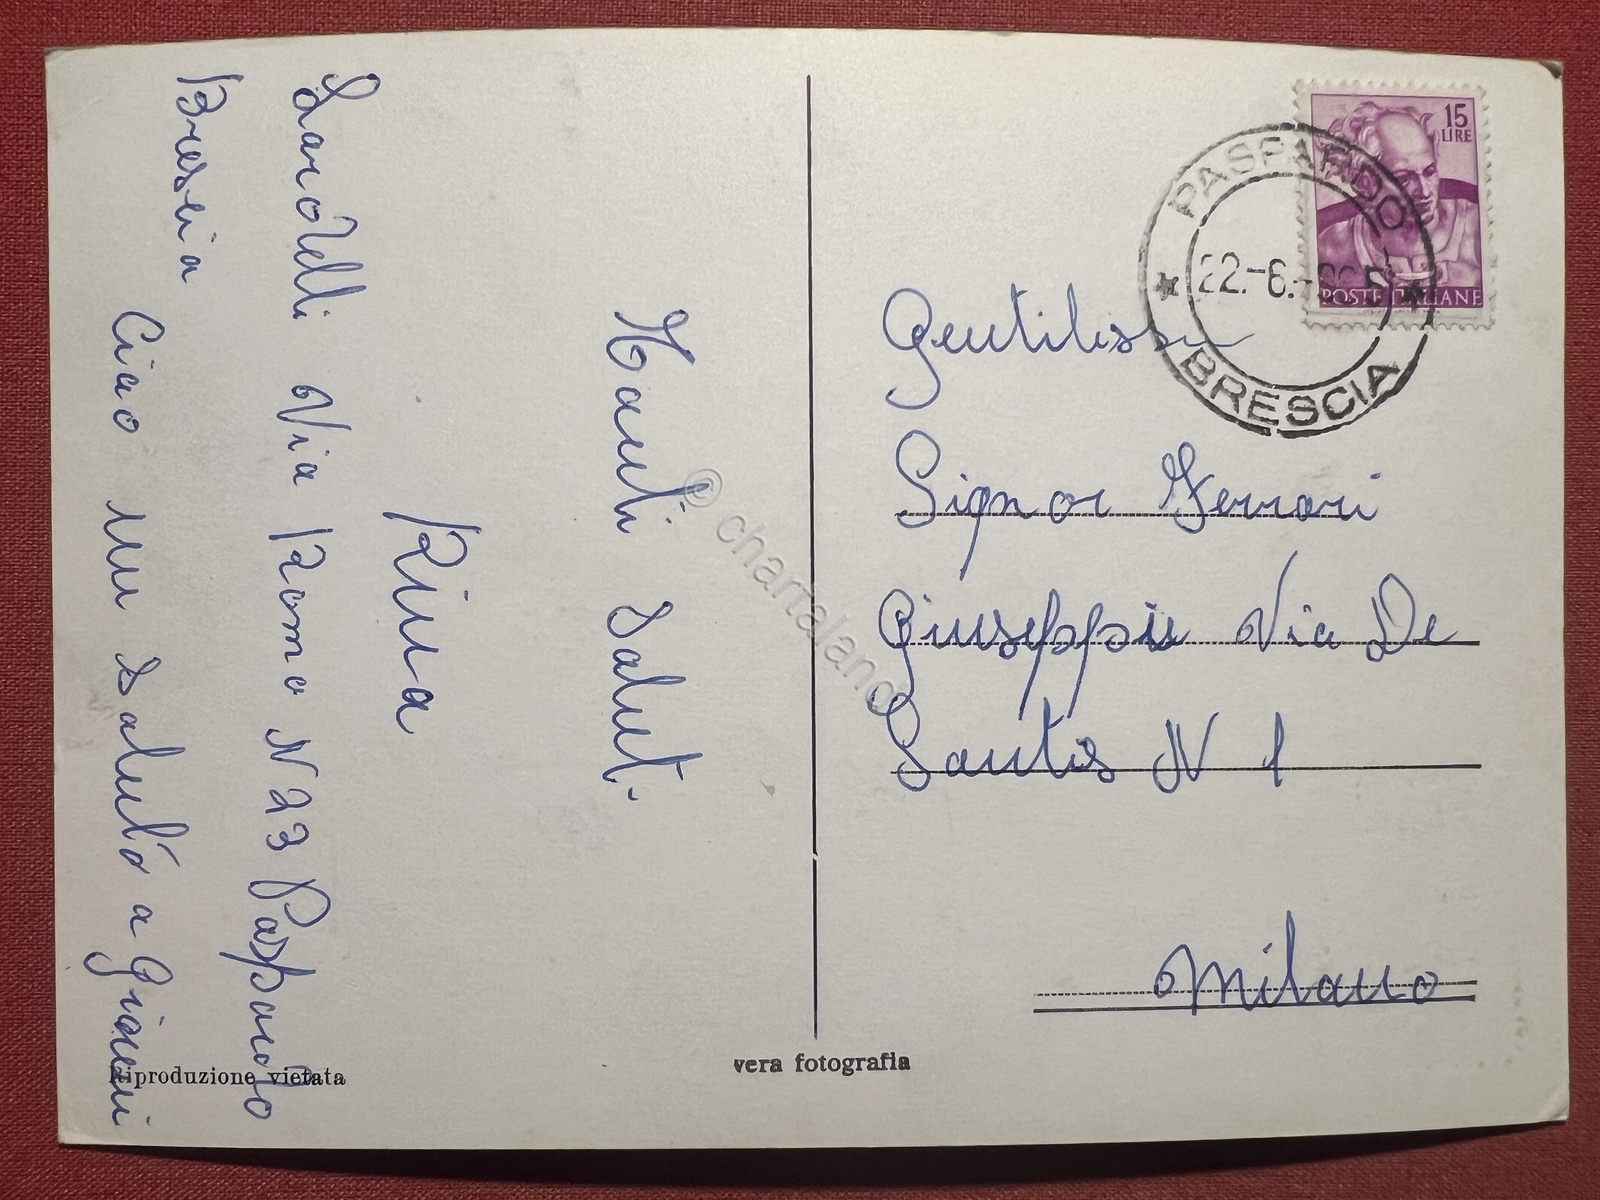 Tanti Saluti
Rina
Sarodeli Via Roma N 23 Paspardo
Brescia
Ciao mi saluti a Giovanni
Riproduzione vietata
vera fotografia
15
LIRE
POSTE ITALIANE
PASPARDO
22.-6.-
BRESCIA
Gentilissi
Signor Ferrari
Giuseppe Via De
Santis N 1
Milano
© chartaland